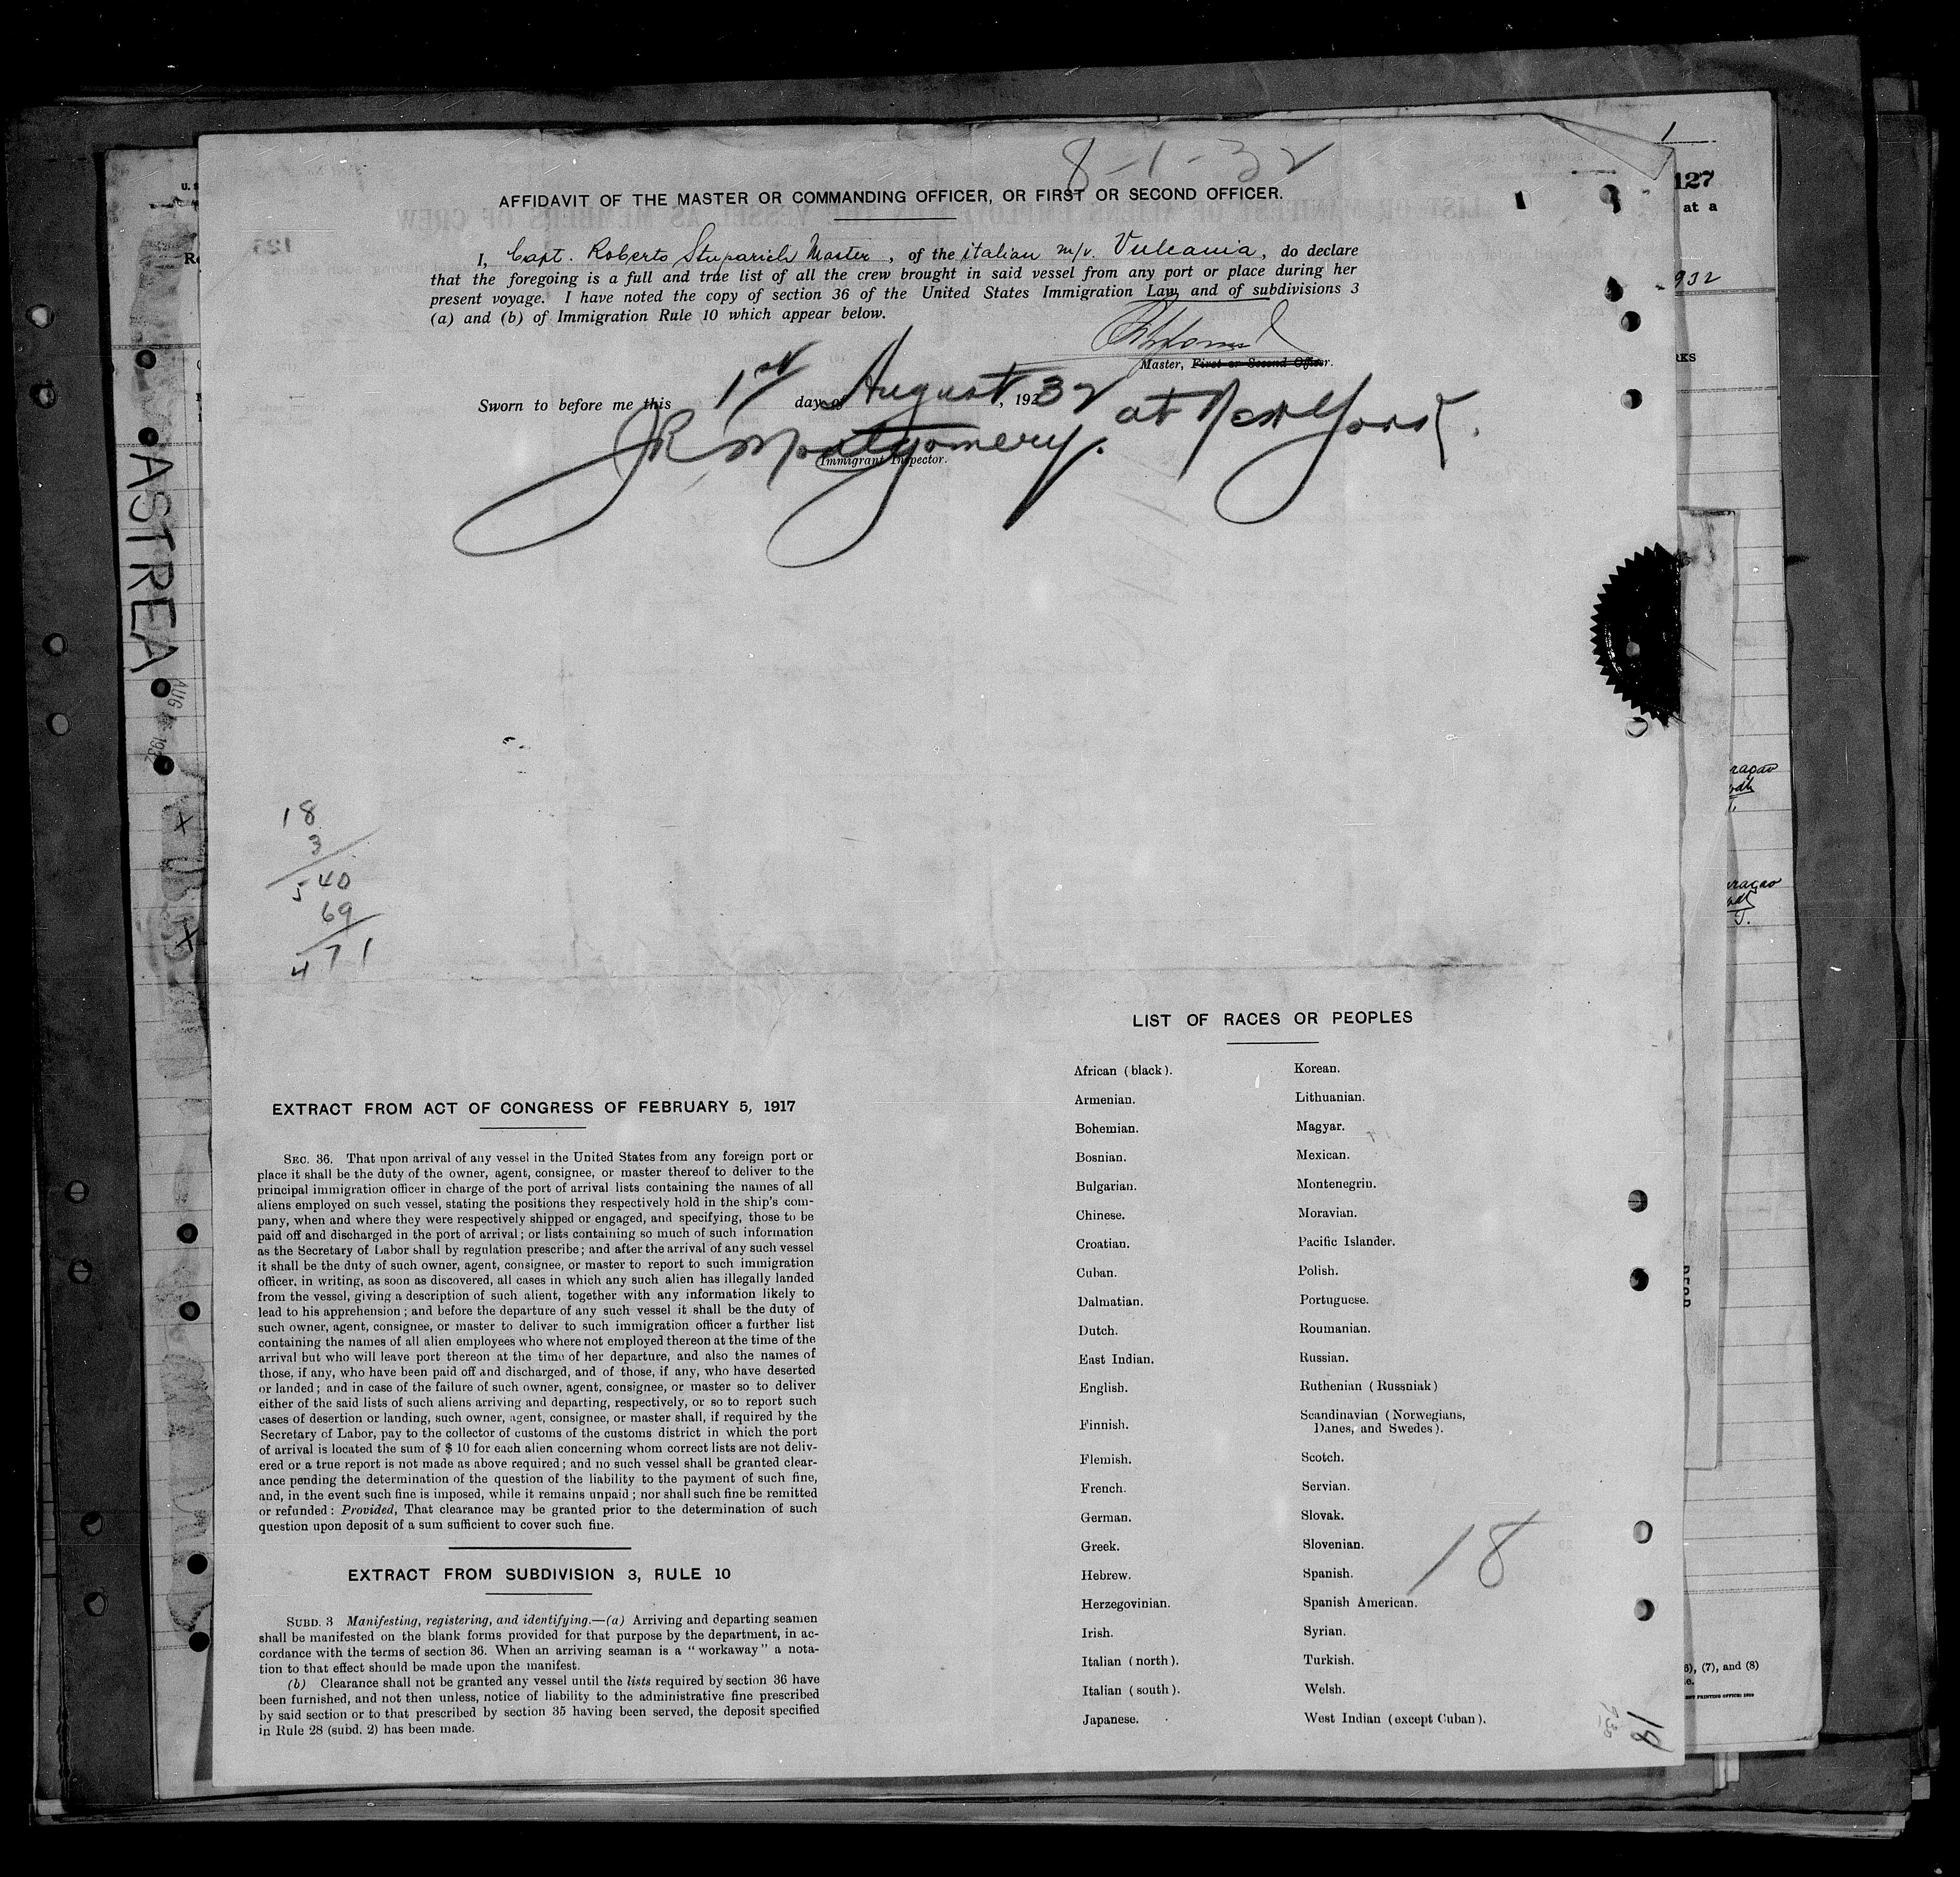 8-1-32
AFFIDAVIT OF THE MASTER OR COMMANDING OFFICER, OR FIRST OR SECOND OFFICER.
I, Capt. Roberto Stuparich Master, of the italian m/v. Vulcania, do declare
that the foregoing is a full and true list of all the crew brought in said vessel from any port or place during her
present voyage. I have noted the copy of section 36 of the United States Immigration Law, and of subdivisions 3
(a) and (b) of Immigration Rule 10 which appear below.
Master, First or Second Officer.
Sworn to before me this 1st day of August, 19232 at New York.
JR Montgomery.
Immigrant Inspector.
ASTREA
AUG 1932
1
127
at a
932
RKS
18
3
540
69
471
LIST OF RACES OR PEOPLES
African (black).
Armenian.
Bohemian.
Bosnian.
Bulgarian.
Chinese.
Croatian.
Cuban.
Dalmatian.
Dutch.
East Indian.
English.
Finnish.
Flemish.
French.
German.
Greek.
Hebrew.
Herzegovinian.
Irish.
Italian (north).
Italian (south).
Japanese.
Korean.
Lithuanian.
Magyar.
Mexican.
Montenegrin.
Moravian.
Pacific Islander.
Polish.
Portuguese.
Roumanian.
Russian.
Ruthenian (Russniak)
Scandinavian (Norwegians,
Danes, and Swedes).
Scotch.
Servian.
Slovak.
Slovenian.
Spanish.
Spanish American.
Syrian.
Turkish.
Welsh.
West Indian (except Cuban).
18
EXTRACT FROM ACT OF CONGRESS OF FEBRUARY 5, 1917
SEC. 36. That upon arrival of any vessel in the United States from any foreign port or
place it shall be the duty of the owner, agent, consignee, or master thereof to deliver to the
principal immigration officer in charge of the port of arrival lists containing the names of all
aliens employed on such vessel, stating the positions they respectively hold in the ship's com-
pany, when and where they were respectively shipped or engaged, and specifying, those to be
paid off and discharged in the port of arrival; or lists containing so much of such information
as the Secretary of Labor shall by regulation prescribe; and after the arrival of any such vessel
it shall be the duty of such owner, agent, consignee, or master to report to such immigration
officer, in writing, as soon as discovered, all cases in which any such alien has illegally landed
from the vessel, giving a description of such alient, together with any information likely to
lead to his apprehension; and before the departure of any such vessel it shall be the duty of
such owner, agent, consignee, or master to deliver to such immigration officer a further list
containing the names of all alien employees who where not employed thereon at the time of the
arrival but who will leave port thereon at the time of her departure, and also the names of
those, if any, who have been paid off and discharged, and of those, if any, who have deserted
or landed; and in case of the failure of such owner, agent, consignee, or master so to deliver
either of the said lists of such aliens arriving and departing, respectively, or so to report such
cases of desertion or landing, such owner, agent, consignee, or master shall, if required by the
Secretary of Labor, pay to the collector of customs of the customs district in which the port
of arrival is located the sum of $ 10 for each alien concerning whom correct lists are not deliv-
ered or a true report is not made as above required; and no such vessel shall be granted clear-
ance pending the determination of the question of the liability to the payment of such fine,
and, in the event such fine is imposed, while it remains unpaid; nor shall such fine be remitted
or refunded: Provided, That clearance may be granted prior to the determination of such
question upon deposit of a sum sufficient to cover such fine.
EXTRACT FROM SUBDIVISION 3, RULE 10
SUBD. 3 Manifesting, registering, and identifying.—(a) Arriving and departing seamen
shall be manifested on the blank forms provided for that purpose by the department, in ac-
cordance with the terms of section 36. When an arriving seaman is a "workaway" a nota-
tion to that effect should be made upon the manifest.
(b) Clearance shall not be granted any vessel until the lists required by section 36 have
been furnished, and not then unless, notice of liability to the administrative fine prescribed
by said section or to that prescribed by section 35 having been served, the deposit specified
in Rule 28 (subd. 2) has been made.
6), (7), and (8)
18